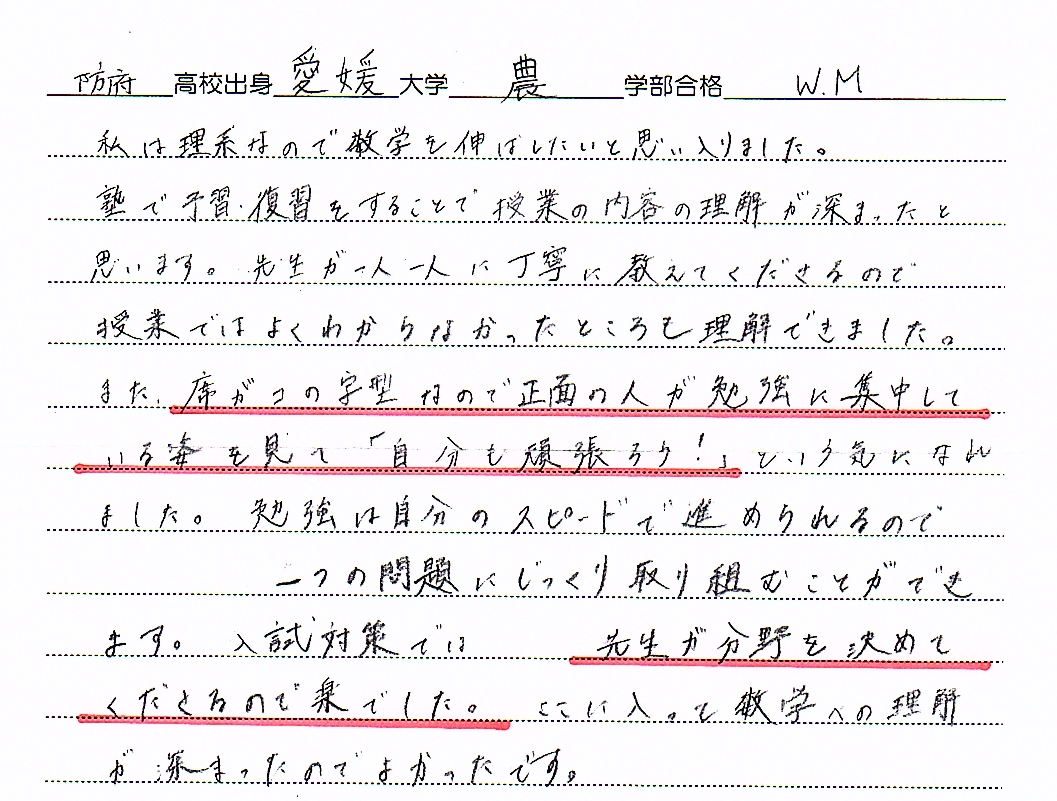 防府 高校出身 愛媛 大学 農 学部合格 W.M
私は理系なので数学を伸ばしたいと思い入りました。
塾で予習・復習をすることで授業の内容の理解が深まったと
思います。先生が一人一人に丁寧に教えてくださるので
授業ではよくわからなかったところも理解できました。
また、席がコの字型なので正面の人が勉強に集中して
いる姿を見て「自分も頑張ろう!」という気になれ
ました。勉強は自分のスピードで進められるので
一つの問題にじっくり取り組むことができ
ます。入試対策では 先生が分野を決めて
くださるので楽でした。ここに入って数学への理解
が深まったのでよかったです。